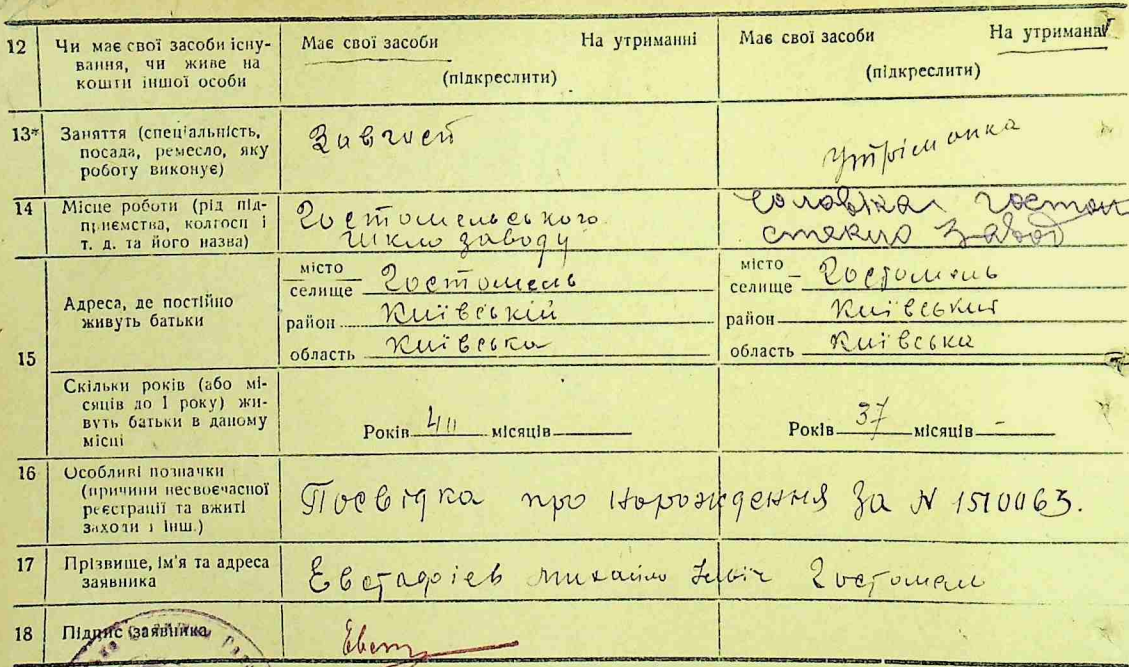 12 Чи має свої засоби існу-
вання, чи живе на
кошти іншої особи
Має свої засоби На утриманні
(підкреслити)
Має свої засоби На утриманні
(підкреслити)
13* Заняття (спеціальність,
посада, ремесло, яку
роботу виконує)
Завгосп
14 Місце роботи (рід під-
приємства, колгосп і
т. д. та його назва)
Гостомельського
заводу
завод
15 Адреса, де постійно
живуть батьки
місто
селище Гостомель
район Київській
область Київська
місто
селище Гостомель
район Київський
область Київська
Скільки років (або мі-
сяців до 1 року) жи-
вуть батьки в даному
місці
Років місяців
Років 37 місяців -
16 Особливі позначки
(причини несвоєчасної
реєстрації та вжиті
заходи і інш.)
Посвідка про норождення за N 1510063.
17 Прізвище, ім'я та адреса
заявника
Евстафієв Михайло Гостомел
18 Підпис (заявника